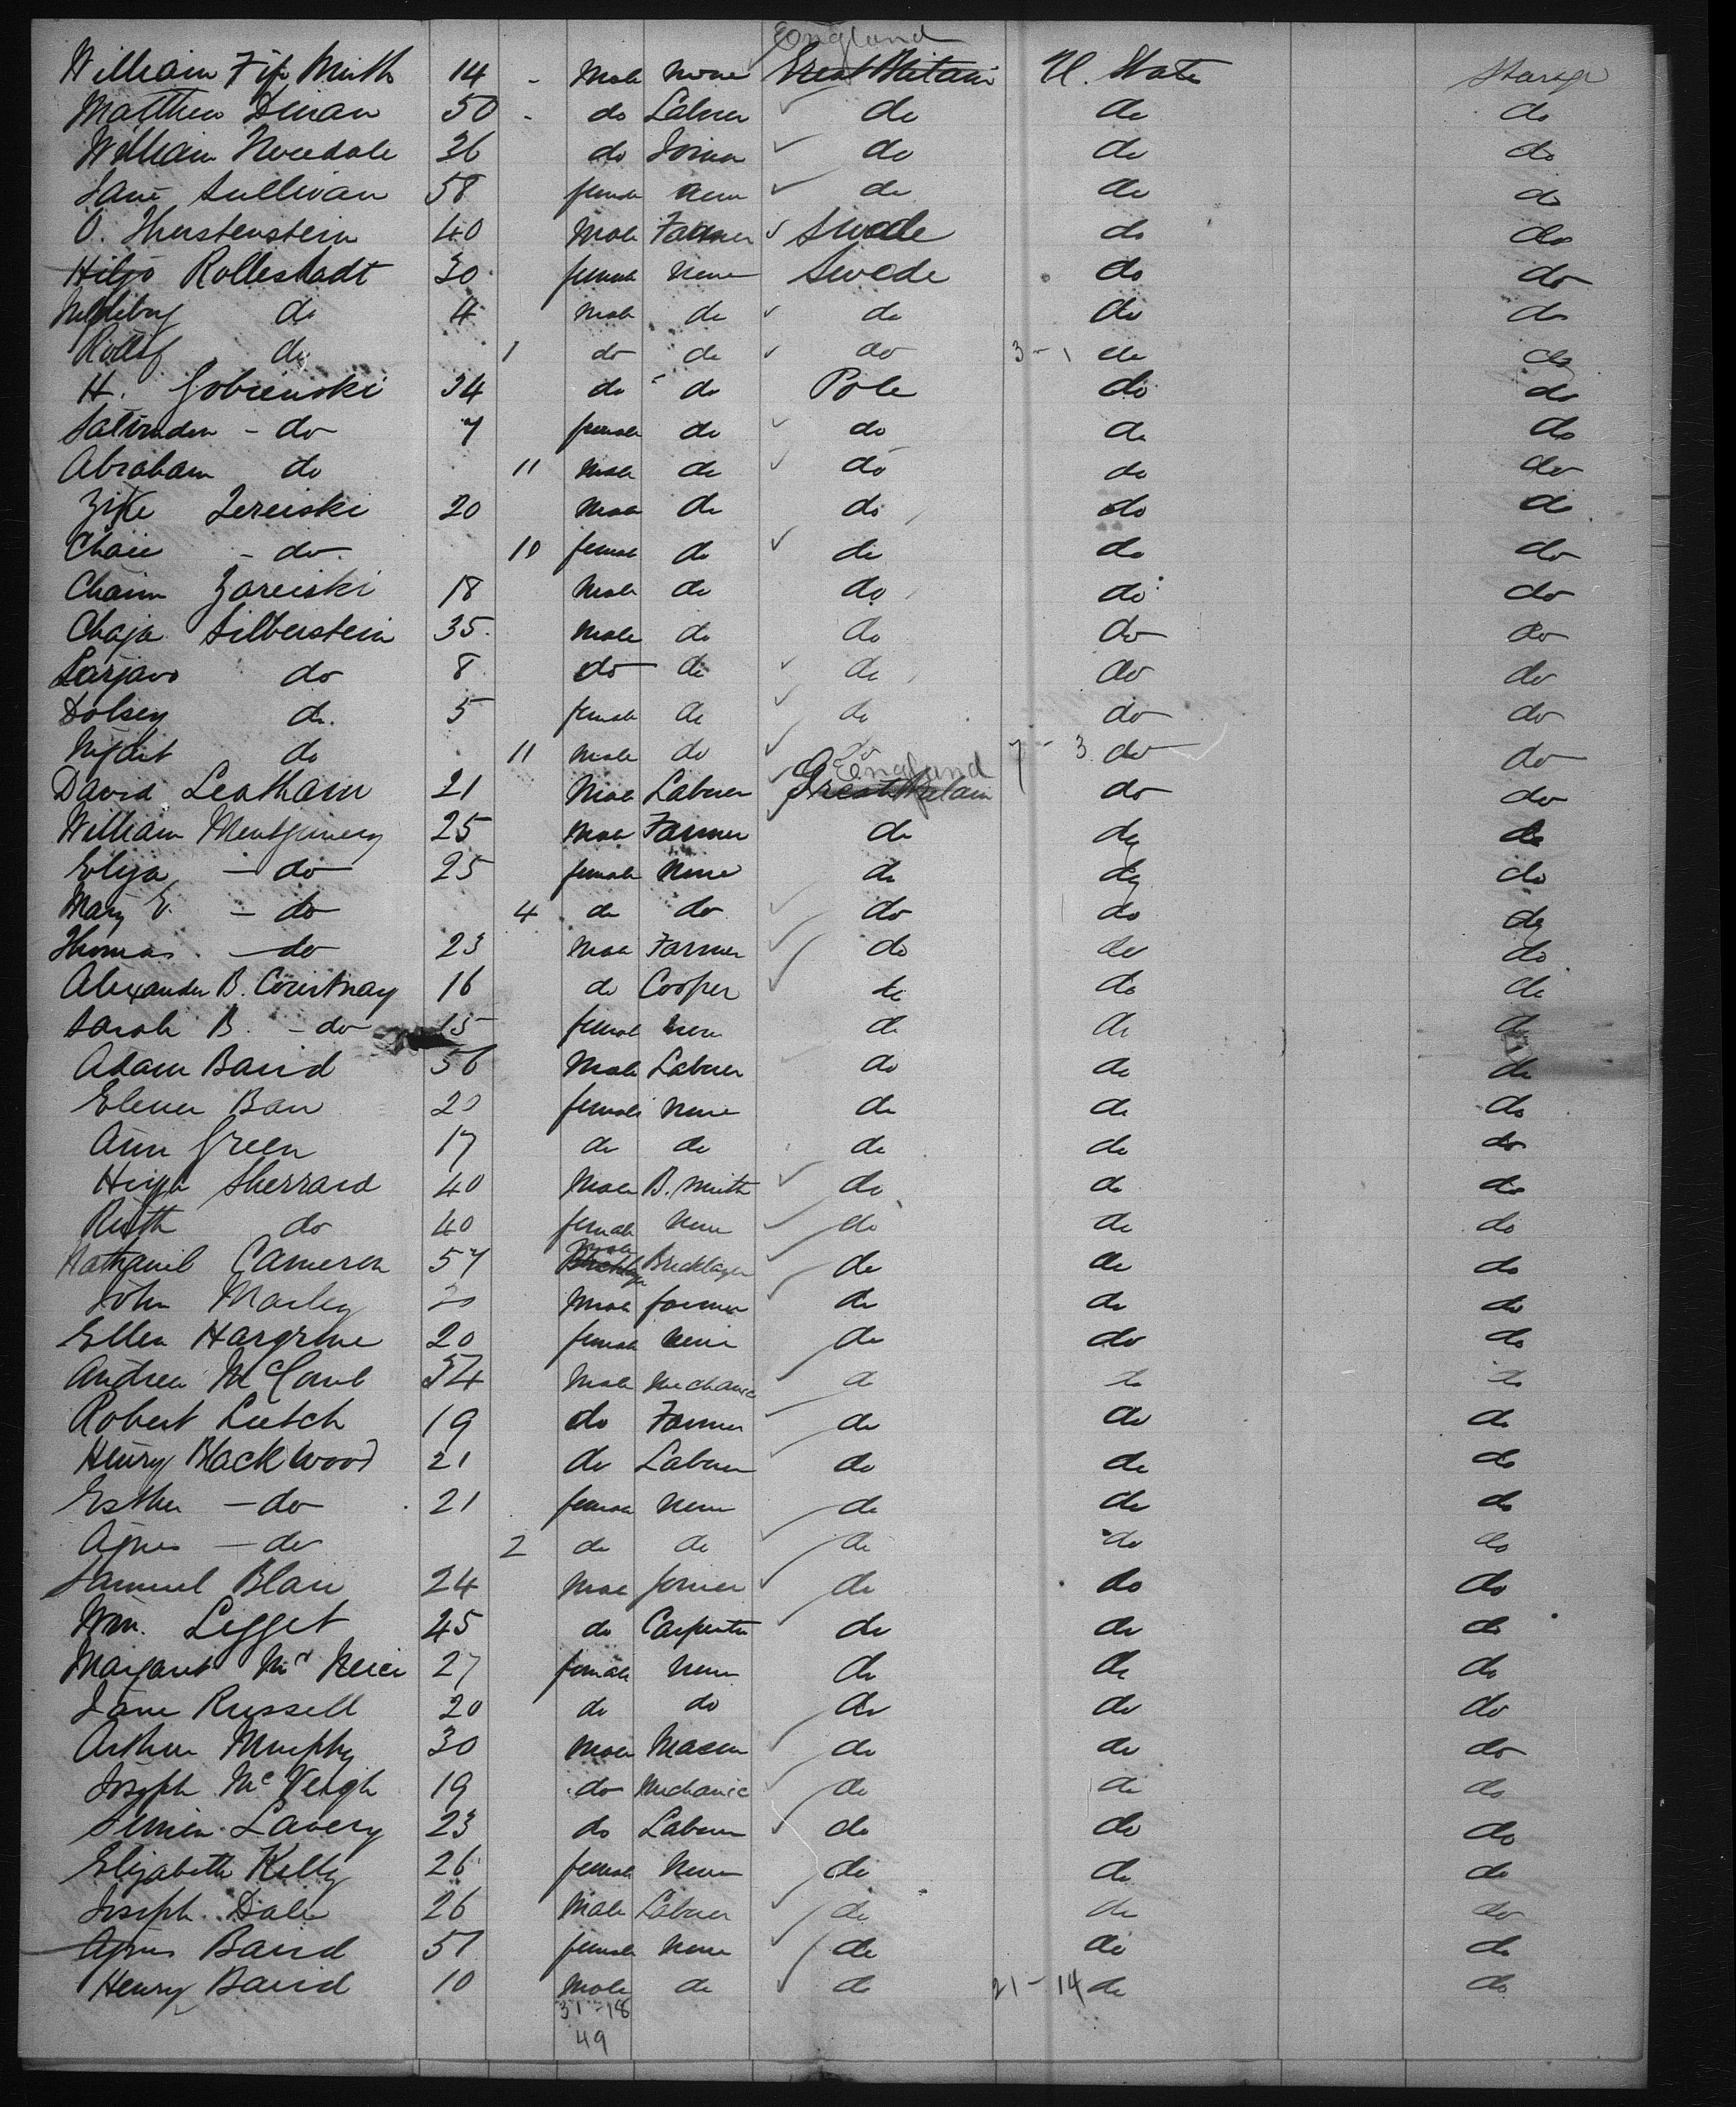 England
William Fip Smith 14 - Male None Great Britain U. States Steerage
Matthew Dinan 50 - do Laborer do do do
William Novedale 36 do Joiner do do do
Jane Sullivan 58 female none do do do
O. Therstenstein 40 Male Farmer Swede do do
Hiljo Rollestadt 30 female none Swede do do
do 4 male do do do do
Rollf do 1 do do do 3 - 1 do do
H. Gobrenski 34 do do Pole do do
do 7 female do do do do
Abraham do 11 male do do do do
Zike Zereiski 20 male do do do do
Chaie - do 10 female do do do do
Chaim Zareiski 18 male do do do do
Chaja Silberstein 35 male do do do do
Sarjavo do 8 do do do do do
Dolsey do. 5 female do do do do
do 11 male do do 7 - 3 do do
England
David Leatham 21 Male Laborer Great Britain do do
William Montgomery 25 male Farmer do do do
Eliza - do 25 female none do do do
Mary E. - do 4 do do do do do
Thomas - do 23 male Farmer do do do
Alexander B. Courtnay 16 do Cooper do do do
Sarah B. - do 15 female none do do do
Adam Baird 56 Male Laborer do do do
Elener Barr 20 female none do do do
Ann Green 17 do do do do do
Hugh Sherrard 40 Male B. Smith do do do
Ruth do 40 female none do do do
male
Nathaniel Cameron 57 Bricklayer Bricklayer do do do
John Marley 20 male farmer do do do
Ellen Hargrove 20 female none do do do
Andrew McCaul 54 male mechanic do do do
Robert Leetch 19 do Farmer do do do
Henry Blackwood 21 do Laborer do do do
Esther - do 21 female none do do do
Agnes - do 2 do do do do do
Samuel Blair 24 male joiner do do do
Wm. Legget 45 do Carpenter do do do
Margaret Mc Neice 27 female none do do do
Jane Russell 20 do do do do do
Arthur Murphy 30 male Mason do do do
Joseph McVeigh 19 do mechanic do do do
Simon Lavery 23 do Laborer do do do
Elizabeth Kelly 26 female none do do do
Joseph Dale 26 Male Laborer do do do
Agnes Baird 51 female none do do do
Henry Baird 10 male do do 21 - 14 do do
31 - 18
49